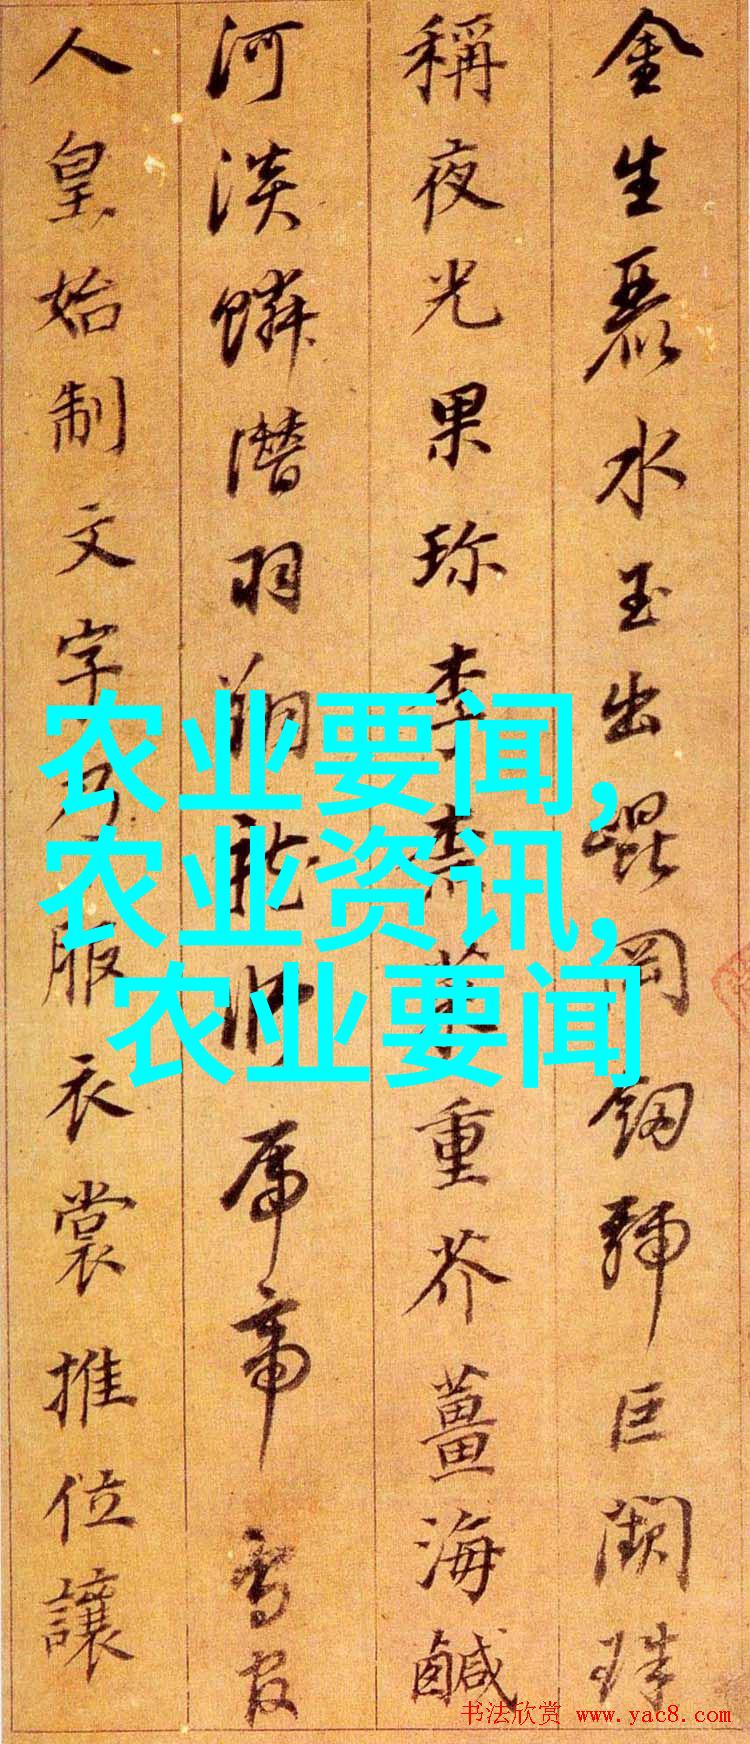 金生麗水玉出崐岡釼號巨闕珠
稱夜光果珎李柰菜重芥薑海鹹
河淡鱗潛羽翔龍師帝鳥官
人皇始制文字乃服衣裳推位讓
农业要闻,
农业资讯,
农业要闻
书法欣赏 www.yac8.com